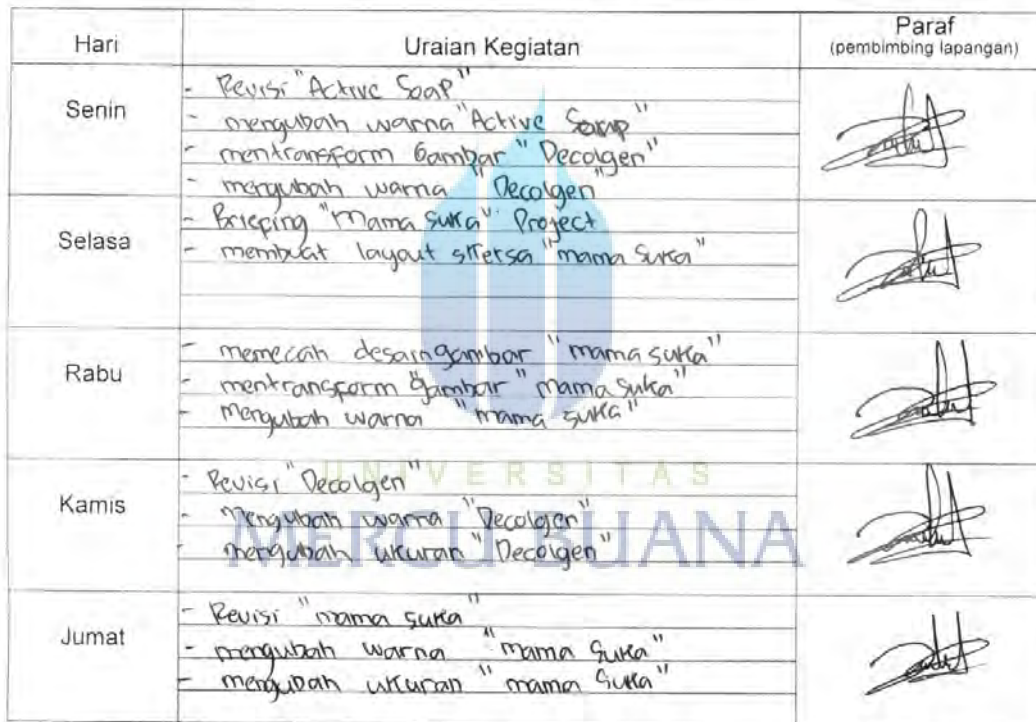 Hari Uraian Kegiatan Paraf
(pembimbing lapangan)
Senin
- Revisi "Active Soap"
- mengubah warna "Active Soap"
- mentransform Gambar "Decolgen"
- mengubah warna "Decolgen"
Selasa
- Briefing "Mama Suka" Project
- membuat layout sketsa "mama Suka"
Rabu
- memecah desain gambar "mama suka"
- mentransform gambar "mama suka"
- mengubah warna "mama suka"
Kamis
- Revisi "Decolgen"
- Mengubah warna "Decolgen"
- mengubah ukuran "Decolgen"
Jumat
- Revisi "mama suka"
- mengubah warna "mama Suka"
- mengubah ukuran "mama Suka"
UNIVERSITAS
MERCU BUANA